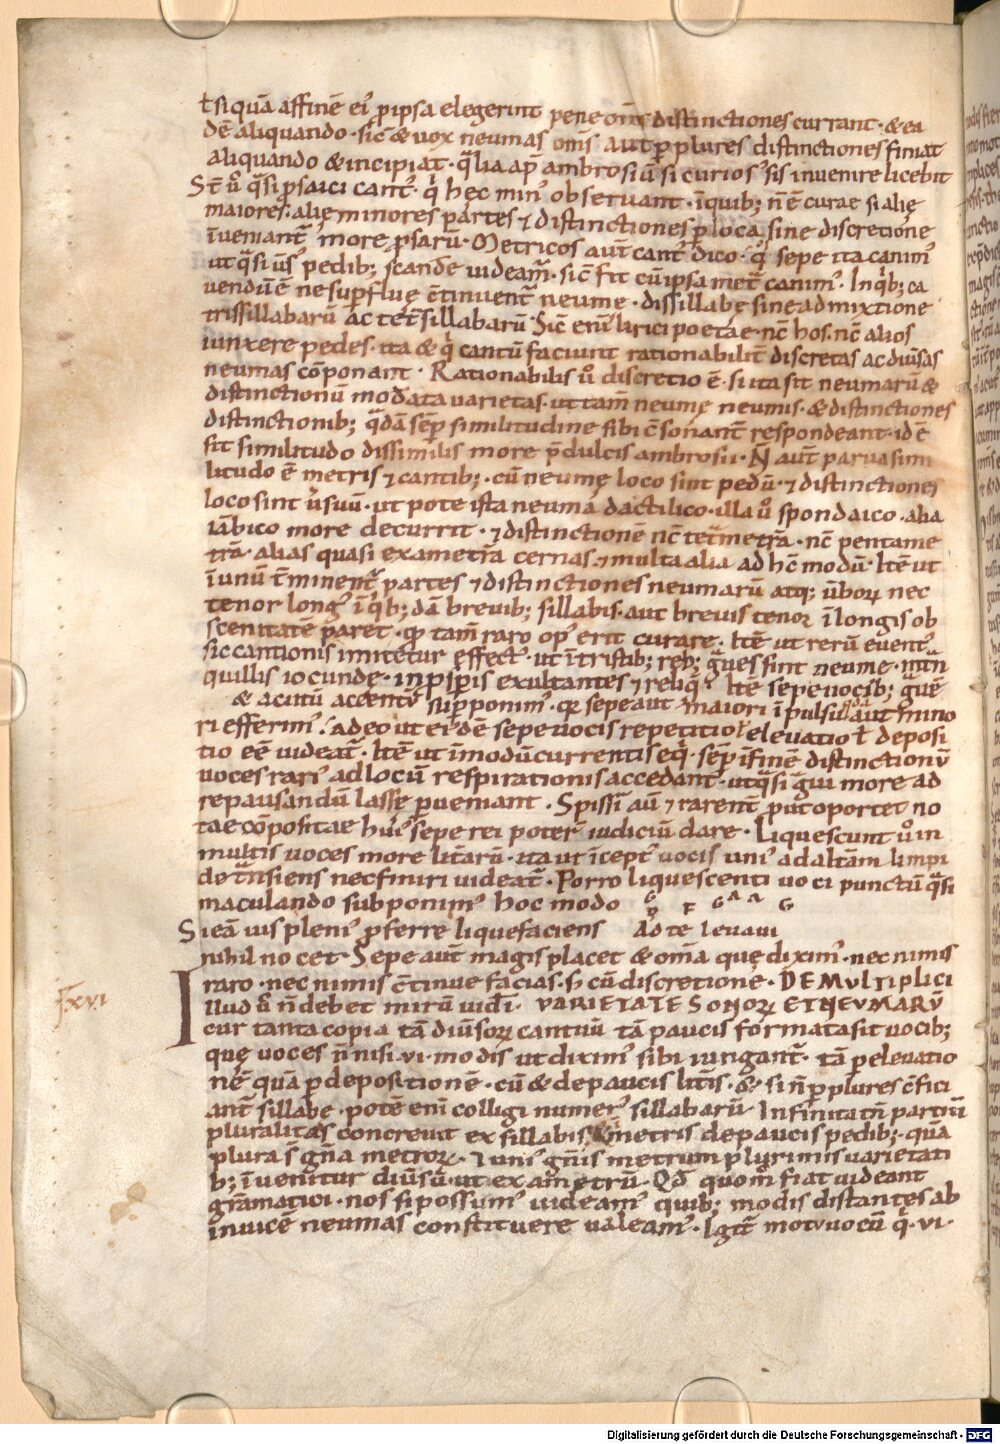 t siquā affinē ei' p ipsa elegerint pene om̄s distinctiones currant · & ea
dē aliquando · sic̄ & vox neumas om̄s aut p plures distinctiones finiat
aliquando & incipiat · q̄lia ap̄ ambrosiū si curios' sis invenire licebit
St̄ ů q̄si psaici cant' · q̇ hec min' observant · īquib; n̄ ē curae si alię
maiores · alię minores partes ⁊ distinctiones p loca sine discretione
īveniant' more psarū · Metricos aut̄ cant' dico · qͦ sepe ita canim'
ut q̄si ūs' pedib; scandē videam̄ · sic̄ fit cū ipsa met̄ canim' · Inq̇b; ca
vendū ē ne supfluę c̄tinvent̄ neume · dissillabę sine admixtione
trissillabarū ac tet̄sillabarū · Sic̄ eni' lirici poetae · nc̄ hos · nc̄ alios
iunxere pedes · ita & q̇ cantū faciunt rationabilit̄ discretas ac diūsas
neumas cōponant · Rationabilis ů discretio ē · si ita fit neumarū &
distinctionū mod̄ata varietas · ut tam̄ neumę neumis · & distinctiones
distinctionib; q̄dā sēp similitudine sibi c̄sonant̄ respondeant · id ē
sit similitudo dissimilis more p̄dulcis ambrosii · N̄ aut̄ parva simi
litudo ē metris ⁊ cantib; · cū neumę loco sint pedū · ⁊ distinctiones
loco sint v̇suū · ut pote ista neuma dactilico · illa ů spondaico · alia
iābico more decurrit · ⁊ distinctionē nc̄ tet̄met̄ra · nc̄ pentame
tra · alias quasi exametrā cernas · ⁊ multa alia ad hc̄ modū · Itē ut
ī unū t̄minent̄ partes ⁊ distinctiones neumarū atq; ūboꝝ nec
tenor long' ī q̇b; dā brevib; sillabis · aut brevis tenor ī longis ob
scenitatē paret · qꝫ tam̄ raro op' erit curare · Itē ut rerū event'
sic cantionis imitetur effect' · ut ī tristib; reb; g̈ves sint neume · in tn̄
quillis iocunde · in psperis exultantes ⁊ reliq̇ · Itē sepe vocib; g̈vē
& acutū accentū supponim' · qꝛ sepe aut maiori īpulsu q̄dā aut mino
ri efferim' · adeo ut ei'dē sepe vocis repetitio elevatio t̄ deposi
tio eē videat̄ · Itē ut ī modū currentis equi · sēp ī finē distinctionū
voces rari' ad locū respirationis accedant · ut q̄si g̈vi more ad
repausandū lassę pveniant · Spissi' aū ⁊ rarent̄ put oportet no
tae cōpositae hui' sepe rei poter̄ iudiciū dare · Liquescunt ů in
multis voces more litt̄arū · ita ut īcept' vocis uni' ad altām limpi
de t̄nsiens nec finiri videat̄ · Porro liquescenti voci punctū q̄si
maculando subponim' hoc modo G D F G a a G
Si eā vis pleni' pferre liquefaciens Ad te levavi
nihil nocet · Sepe aut̄ magis placet & om̄a quę dixim' · nec nimis
raro · nec nimis c̄tinue facias · s; cū discretione · DE MULTIPLICI
Illud ů n̄ debet mirū vidi' · VARIETATE SONORꝜ ET NEVMARŪ
cur tanta copia tā diūsoꝝ cantuū tā paucis formata sit vocib;
quę voces n̄ nisi · vi · modis ut dixim' sibi iungant̄ · tā p elevatio
nē quā p depositionē · cū & de paucis litt̄is · & si n̄ p plures c̄fici
ant̄ sillabę · potē eni' colligi numer' sillabarū · Infinita tn̄ partiū
pluralitas concrevit ex sillabis · & ī metris de paucis pedib; · quā
plura s̄ gn̄a metroꝝ · ⁊ uni' gn̄is metrum plurimis varietati
b; īvenitur diūsū · ut exametrū · Qd̄ quom̄ fiat videant
grāmatici · nos si possum' videam' quib; modis distantes ab
invicē neumas constituere valeam' · Igit̄ motū vocū q̇ · vi ·
xvi